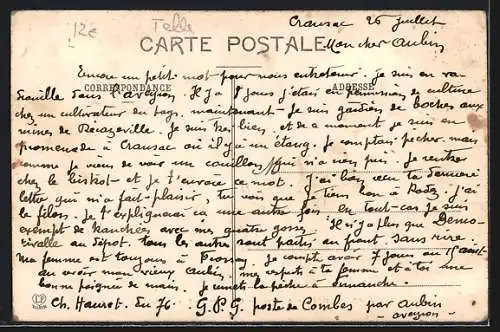 12€
Cransac 26 Juillet
CARTE POSTALE
Mon cher Aubin
Encore un petit mot pour nous entretenir. Je suis en va-
CORRESPONDANCE ADRESSE
drouille dans l'aveyron. Il y a 8 jours j'étais en permission de culture
chez un cultivateur du pays. maintenant je suis gardien de boches aux
mines de Decazeville. Je suis très bien et de ce moment je suis en
promenade à Cransac où il y a un étang. Je comptais pêcher. mais
comme je viens de voir un couillon qui n'a rien pris. Je rentre
chez le bistrot et je t'envoie ce mot. J'ai bien reçu ta dernière
lettre qui m'a fait plaisir, tu vois que je tiens bon à Rodez, j'ai
le filon. Je t'expliquerai ça une autre fois en tout cas je suis
exempt de tranchées avec mes quatre gosses. Il n'y a plus que
au dépôt. tous les autres sont partis au front sans rire.
Ma femme est toujours à Je compte avoir 7 jours au 15 août
au revoir mon vieux Aubin mes respects à ta femme et à toi une
bonne poignée de main. Je remets la pêche à dimanche.
Ch. Hauret. Du 76. G.P.G poste de Combes par Aubin
aveyron